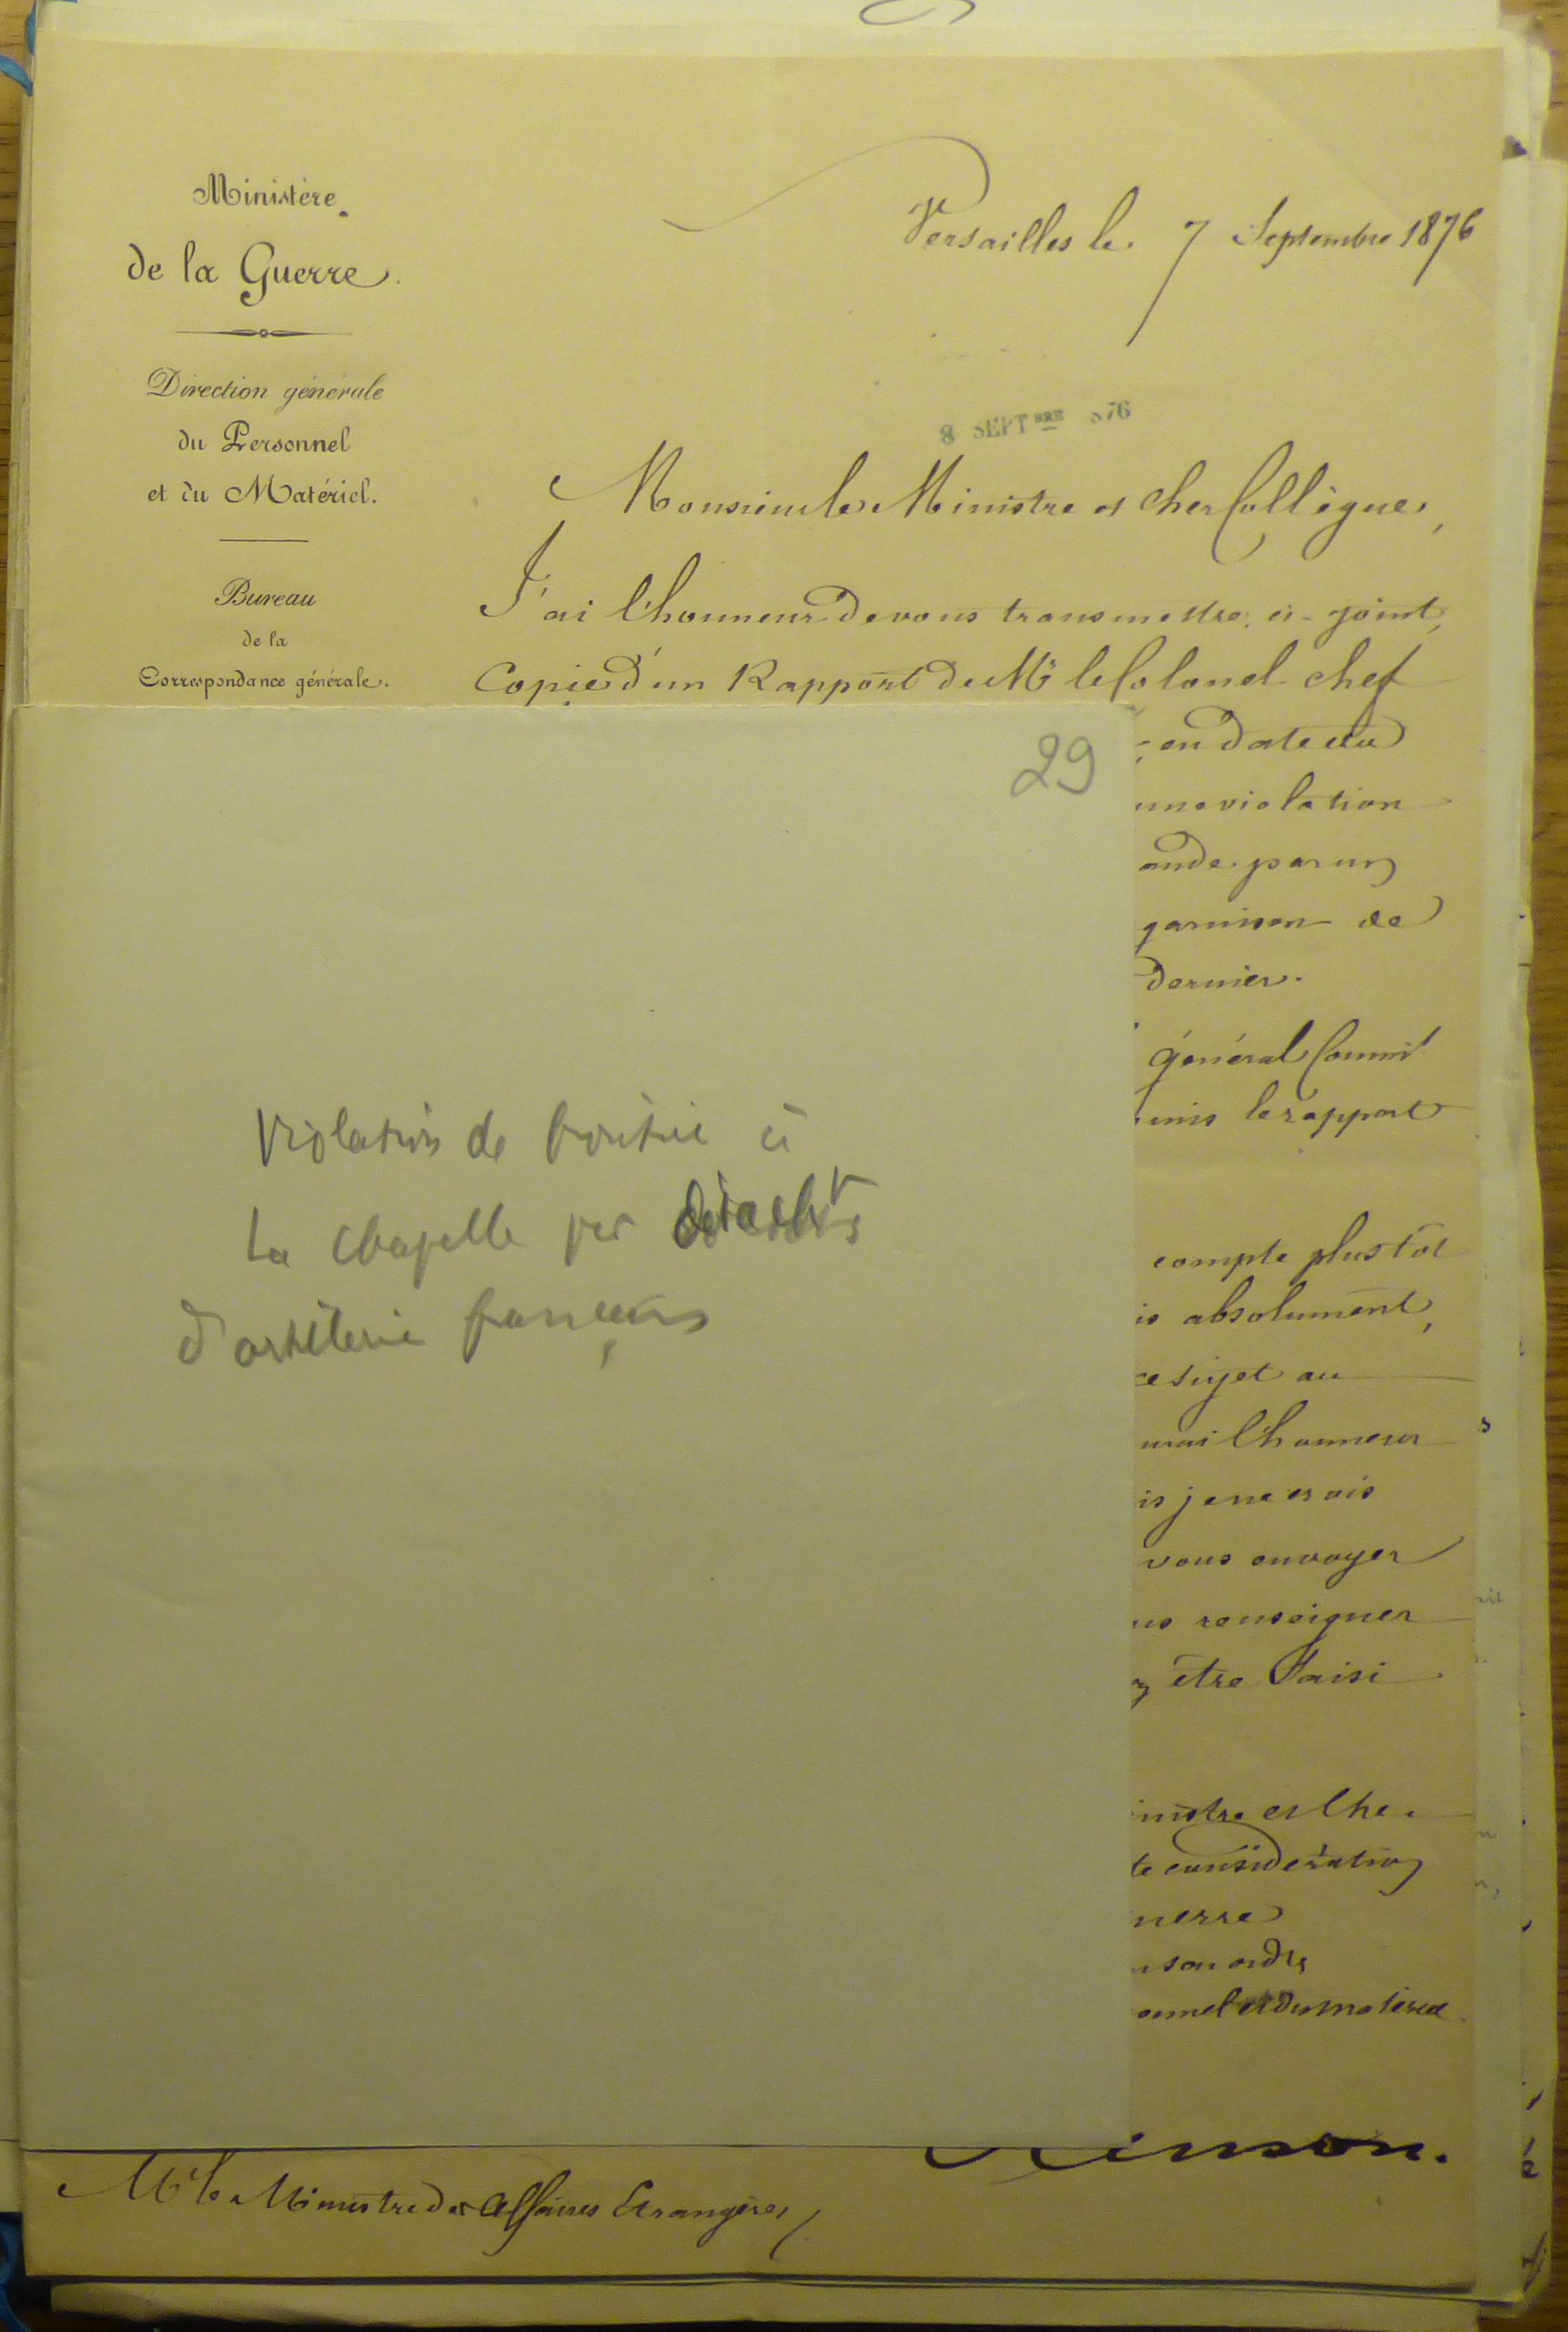 Ministère
de la Guerre.
Direction générale
du Personnel
et du Matériel.
Bureau
de la
Correspondance générale.
Versailles le 7 Septembre 1876
8 SEPTBRE 76
Monsieur le Ministre et cher Collègue,
J'ai l'honneur de vous transmettre ci-joint,
Copie d'un Rapport de Mr le Colonel chef
en date du
une violation
ande par un
garnison de
dernier.
général Commt
mis le rapport
compte plus tôt
is absolument,
ce sujet au
urai l'honneur
is je ne crois
vous envoyer
us renseigner
z être saisi
inistre et Cher
te considération
uerre
n son ordre
onnel et du matériel
29
Violation de frontière à
La Chapelle par détachts
d'artillerie français
Mr le Ministre des Affaires Etrangères